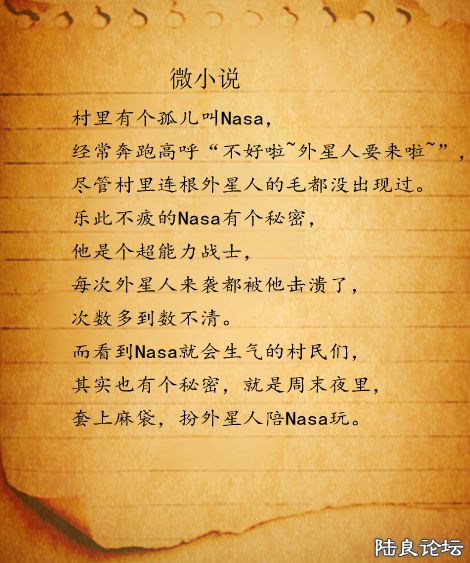 微小说
村里有个孤儿叫Nasa，
经常奔跑高呼“不好啦~外星人要来啦~”，
尽管村里连根外星人的毛都没出现过。
乐此不疲的Nasa有个秘密，
他是个超能力战士，
每次外星人来袭都被他击溃了，
次数多到数不清。
而看到Nasa就会生气的村民们，
其实也有个秘密，就是周末夜里，
套上麻袋，扮外星人陪Nasa玩。
陆良论坛